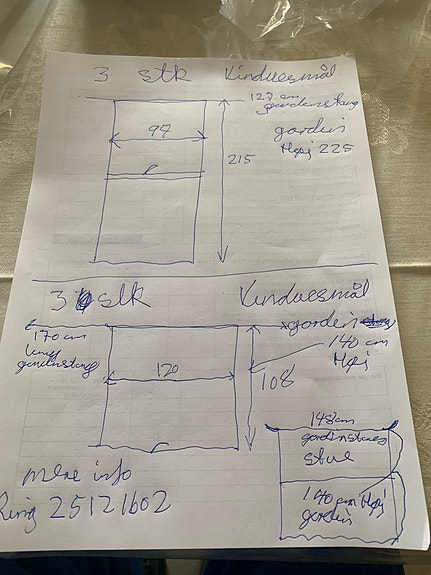 3 stk Vinduesmål
127 cm
gardinstang
97
gardin
Høj 225
215
3 stk Vinduesmål
170 cm
lang
gardinstang
gardin
140 cm
Høj
120
108
148 cm
gardinstang
stue
140 cm Høj
gardin
mere info
Ring 25121602